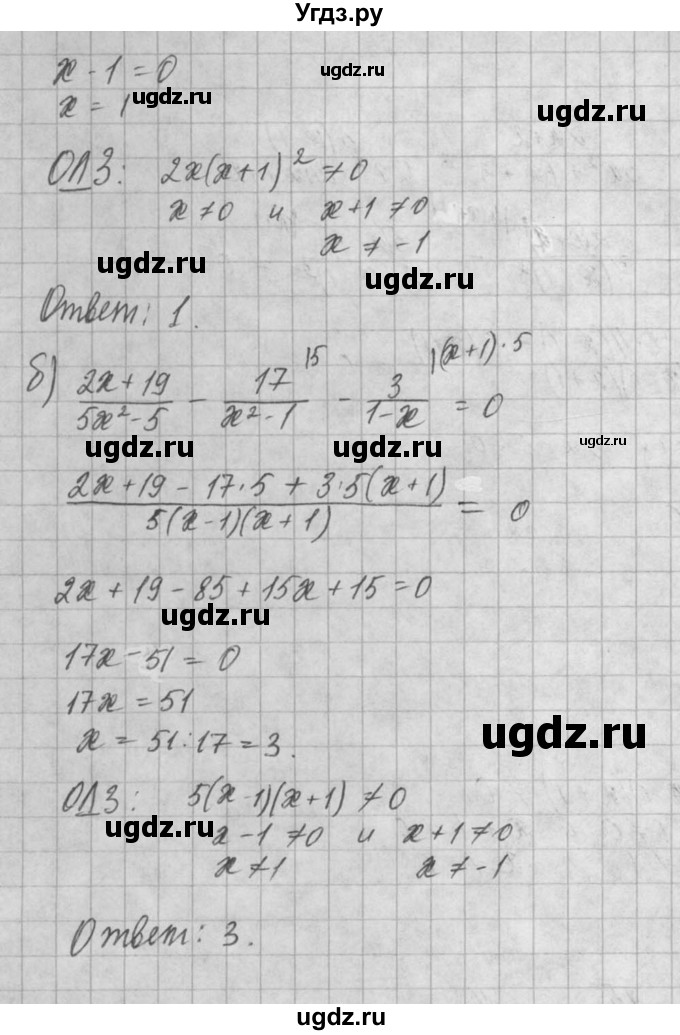 Угдз.ру
x - 1 = 0
ugdz.ru
x = 1
ugdz.ru
ugdz.ru
ОДЗ: 2x(x+1)² ≠ 0
x ≠ 0 и x+1 ≠ 0
x ≠ -1
ugdz.ru
ugdz.ru
Ответ: 1.
б) (2x+19)/(5x²-5) - 17/(x²-1) |5 - 3/(1-x) |(x+1)·5 = 0
ugdz.ru ugdz.ru ugdz.ru
(2x+19 - 17·5 + 3·5(x+1))/(5(x-1)(x+1)) = 0
ugdz.ru ugdz.ru
2x + 19 - 85 + 15x + 15 = 0
ugdz.ru ugdz.ru
17x - 51 = 0
17x = 51
x = 51:17 = 3.
ugdz.ru
ОДЗ: 5(x-1)(x+1) ≠ 0
ugdz.ru
x - 1 ≠ 0 и x+1 ≠ 0
x ≠ 1 x ≠ -1
Ответ: 3.
ugdz.ru